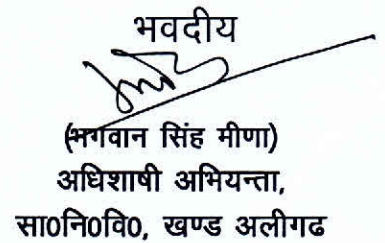 भवदीय
(भगवान सिंह मीणा)
अधिशाषी अभियन्ता,
सा0नि0वि0, खण्ड अलीगढ